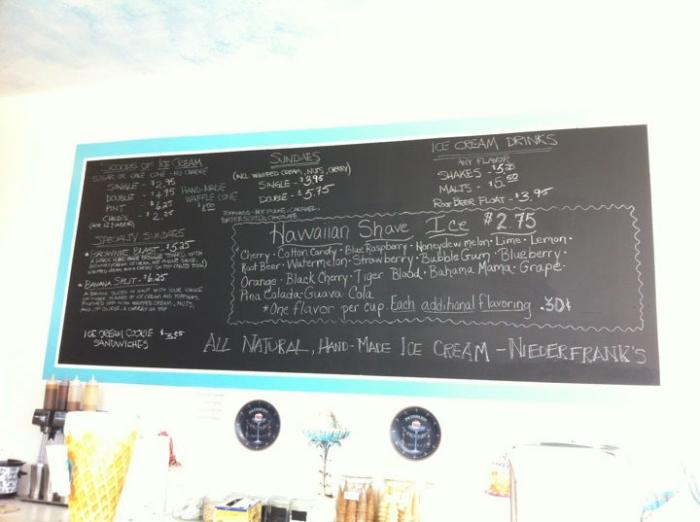 SCOOPS OF ICE CREAM
SUGAR OR CAKE CONE - NO CHARGE
SINGLE - $2.75
DOUBLE - $4.75
PINT - $6.25
CHILD'S - $2.25
HAND-MADE
WAFFLE CONE
SPECIALTY SUNDAES
BROWNIE BLAST - $5.25
BANANA SPLIT - $6.25
ICE CREAM COOKIE
SANDWICHES
SUNDAES
(INCL. WHIPPED CREAM, NUTS, CHERRY)
SINGLE - $3.95
DOUBLE - $5.75
TOPPINGS - HOT FUDGE, CARAMEL,
BUTTERSCOTCH, CHOCOLATE
ICE CREAM DRINKS
ANY FLAVOR
SHAKES - $5.25
MALTS - $5.50
ROOT BEER FLOAT - $3.95
Hawaiian Shave Ice $2.75
Cherry · Cotton Candy · Blue Raspberry · Honeydew melon · Lime · Lemon ·
Root Beer · Watermelon · Strawberry · Bubble Gum · Blueberry ·
Orange · Black Cherry · Tiger Blood · Bahama Mama · Grape ·
Pina Colada · Guava · Cola
*One flavor per cup. Each additional flavoring .30¢
ALL NATURAL, HAND-MADE ICE CREAM - NIEDERFRANK'S